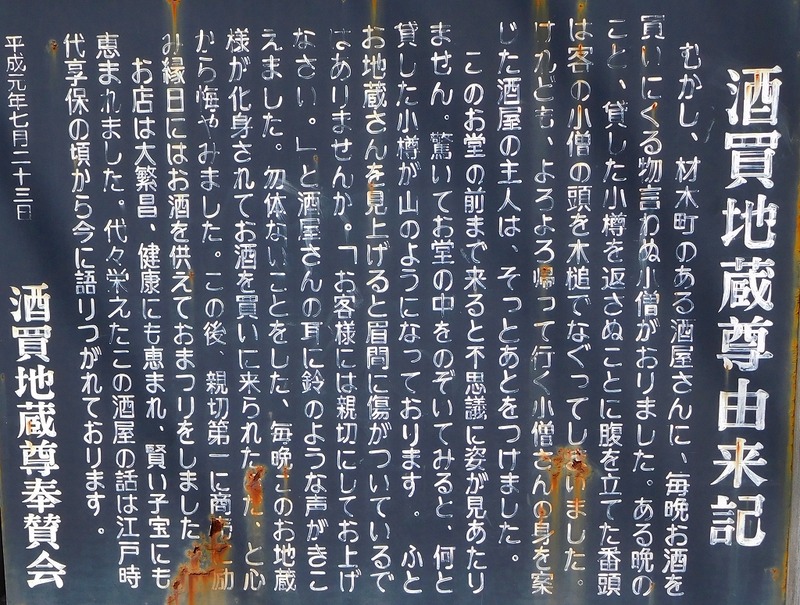 酒買地蔵尊由来記
むかし、材木町のある酒屋さんに、毎晩お酒を
買いにくる物言わぬ小僧がおりました。ある晩の
こと、貸した小樽を返さぬことに腹を立てた番頭
は客の小僧の頭を木槌でなぐってしまいました。
けれども、よろよろ帰って行く小僧さんの身を案
じた酒屋の主人は、そっとあとをつけました。
このお堂の前まで来ると不思議に姿が見あたり
ません。驚いてお堂の中をのぞいてみると、何と
貸した小樽が山のようになっております。ふと
お地蔵さんを見上げると眉間に傷がついているで
はありませんか。「お客様には親切にしてお上げ
なさい。」と酒屋さんの耳に鈴のような声がきこ
えました。勿体ないことをした、毎晩このお地蔵
様が化身されてお酒を買いに来られた た、と心
から悔やみました。この後、親切第一に商 に励
み縁日にはお酒を供えておまつりをしました
お店は大繁昌、健康にも恵まれ、賢い子宝にも
恵まれました。代々栄えたこの酒屋の話は江戸時
代享保の頃から今に語りつがれております。
平成元年七月二十三日
酒買地蔵尊奉賛会